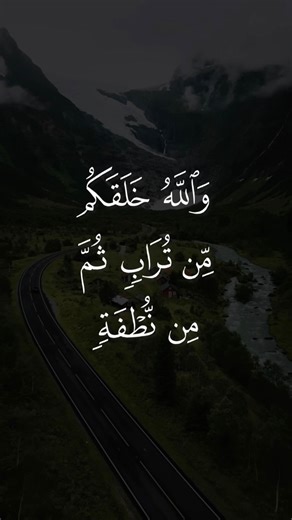 وَٱللَّهُ خَلَقَكُم
مِّن تُرَابٖ ثُمَّ
مِن نُّطۡفَةٖ